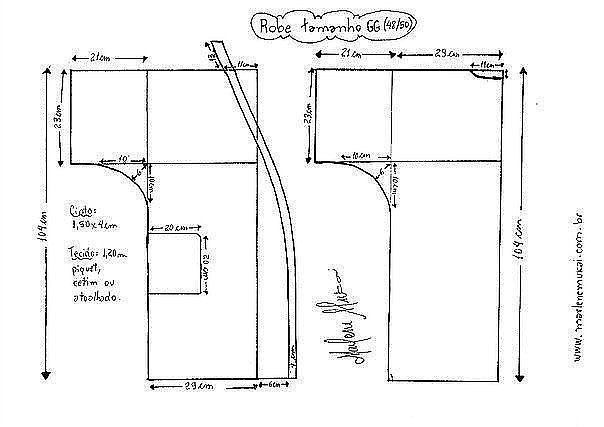 Robe tamanho GG (48/50)
21cm
11cm
23cm
10
6
10cm
104cm
Cinto:
1,80x4cm
Tecido: 1,20m
piquet,
cetim ou
atoalhado.
20 cm
20 cm
29cm
6cm
4 cm
21cm
29cm
11cm
23cm
10cm
6
10cm
104cm
www.marlenemukai.com.br